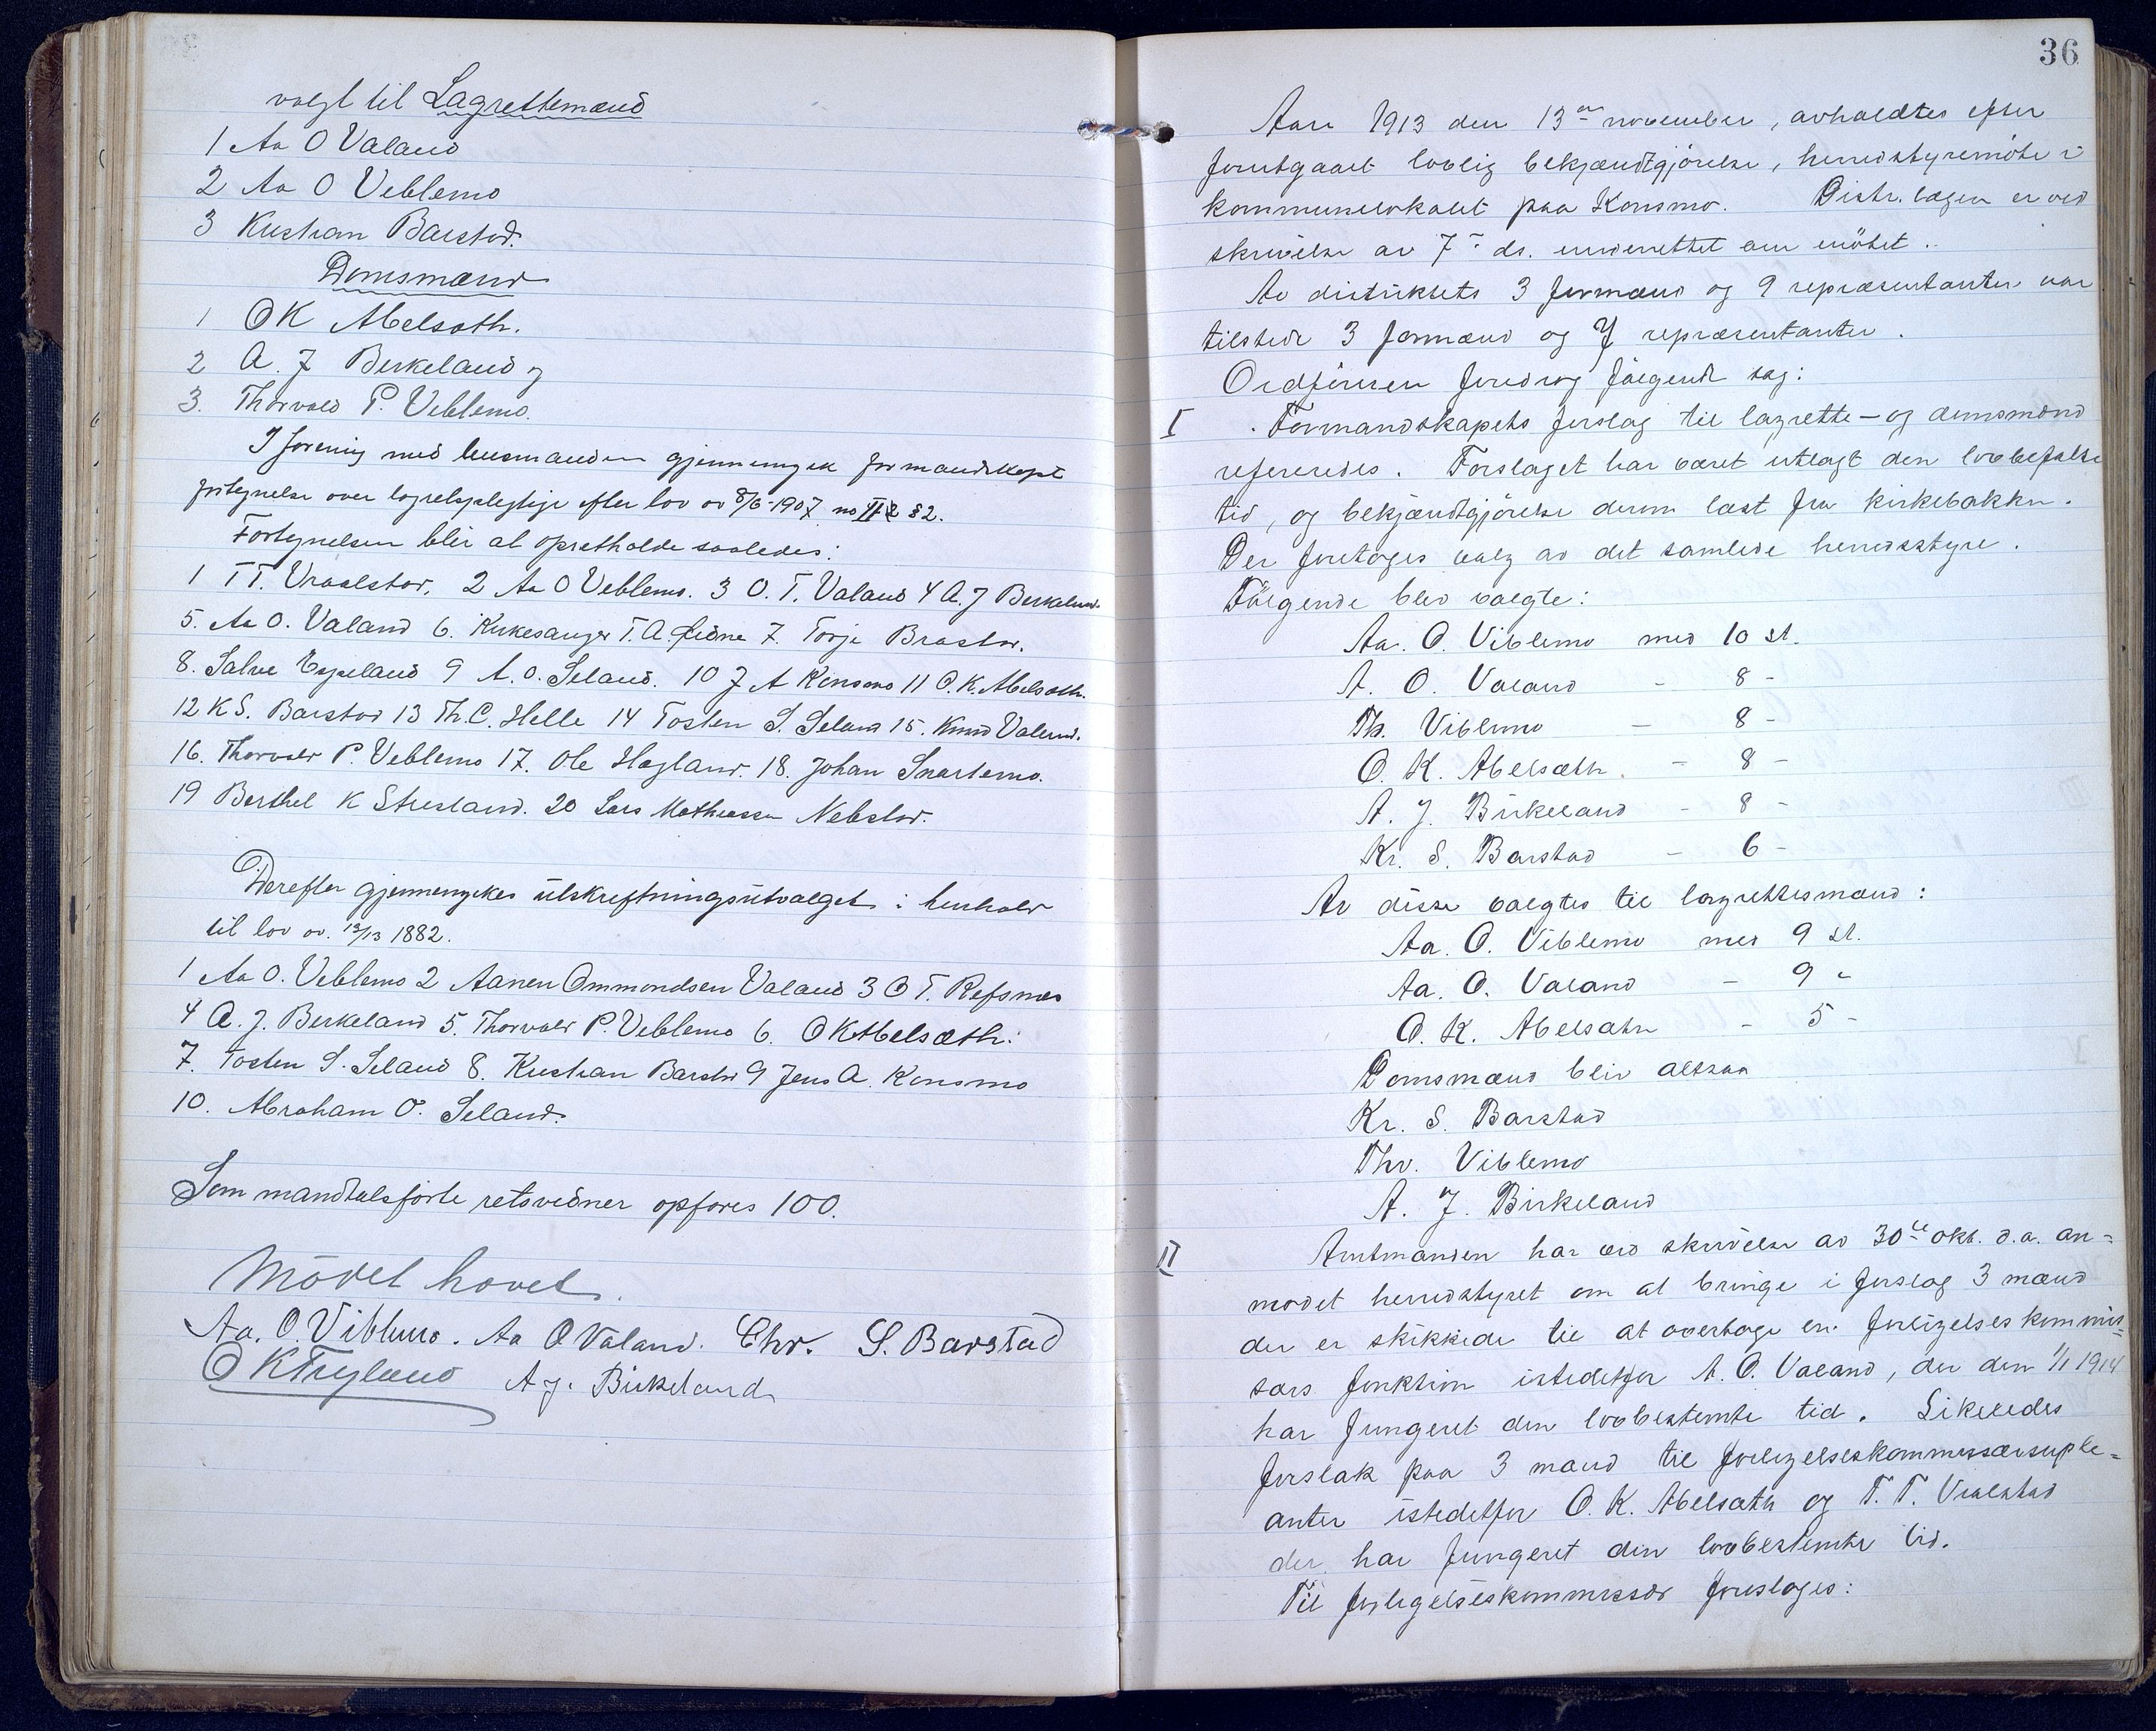 valgt til Lagrettemænd
1 Aa O Valand
2 Aa O Veblemo
3 Kristian Barstad.
Domsmænd
1 OK Abelsæth.
2 A. J Birkeland og
3. Thorvald P. Veblemo.
I forening med lensmanden gjennemgik formandskapet
fortegnelse over lagretspligtige efter lov av 8/6-1907 no II § 2.
Fortegnelsen blir at opretholde saaledes:
1 T T. Vraalstad. 2 Aa O Veblemo. 3 O. T. Valand 4 A. J Birkeland.
5. Aa O. Valand 6. Kirkesanger T. A. Eidne 7. Torje Brastad.
8. Salve Espeland 9 A. O. Seland. 10 J A Konsmo 11 O. K. Abelsæth.
12 K S. Barstad 13 Th. C. Helle 14 Tosten S. Seland 15. Knud Valand.
16. Thorvald P. Veblemo 17. Ole Hagland. 18. Johan Snartemo.
19 Berthel K Stusland. 20 Lars Mathiassen Nebstad.
Derefter gjennemgikes utskriftningsutvalget i henhold
til lov av. 13/13 1882.
1 Aa O. Veblemo 2 Aanen Ommundsen Valand 3 O T. Refsnes
4 A. J. Birkeland 5. Thorvald P. Veblemo 6. O K Abelsæth.
7. Tosten S. Seland 8. Kristian Barstad 9 Jens A. Konsmo
10. Abraham O. Seland.
Som mandtalsførte retsvidner opføres 100.
Mødet hævet.
Aa. O. Viblemo. Aa O Valand. Chr. S. Barstad
O K Tryland A. J. Birkeland
36
Aar 1913 den 13de november, avholdtes efter
forutgaaet lovlig bekjændtgjørelse, herredstyremöte i
kommunelokalet paa Konsmo. Distr. lægen er ved
skrivelse av 7de ds. underrettet om mötet.
Av distriktets 3 formænd og 9 repræsentanter var
tilstede 3 formænd og 7 repræsentanter.
Ordføreren foredrog følgende sag:
I Formandskapets forslag til lagrette- og domsmænd
refereredes. Forslaget har været utlagt den lovbefalte
tid, og bekjændtgjörelse derom læst fra kirkebakken.
Der foretages valg av det samlede herredsstyre.
Følgende blev valgte:
Aa. O. Viblemo med 10 st.
A. O. Valand - 8 -
Th. Viblemo - 8 -
O. K. Abelsæth. - 8 -
A. J. Birkeland - 8 -
Kr. S. Barstad - 6 -
Av disse valgtes til lagrettesmænd:
Aa. O. Viblemo med 9 st.
Aa. O. Valand - 9 "
O. K. Abelsæth - 5 -
Domsmænd blir altsaa
Kr. S. Barstad
Thv. Viblemo
A. J. Birkeland
II Amtmanden har ved skrivelse av 30te okt. d.a. an=
modet herredstyret om at bringe i forslag 3 mænd
der er skikkede til at overtage en forligelseskommis=
særs funktion istedetfor A. O. Valand, der den 1/1 1914
har fungeret den lovbestemte tid. Likeledes
forslak paa 3 mænd til forligelseskommissærsuple=
anter istedetfor O. K. Abelsæth og T. T. Vralstad
der har fungeret den lovbestemte tid.
Til forligelseskommissær foreslages: